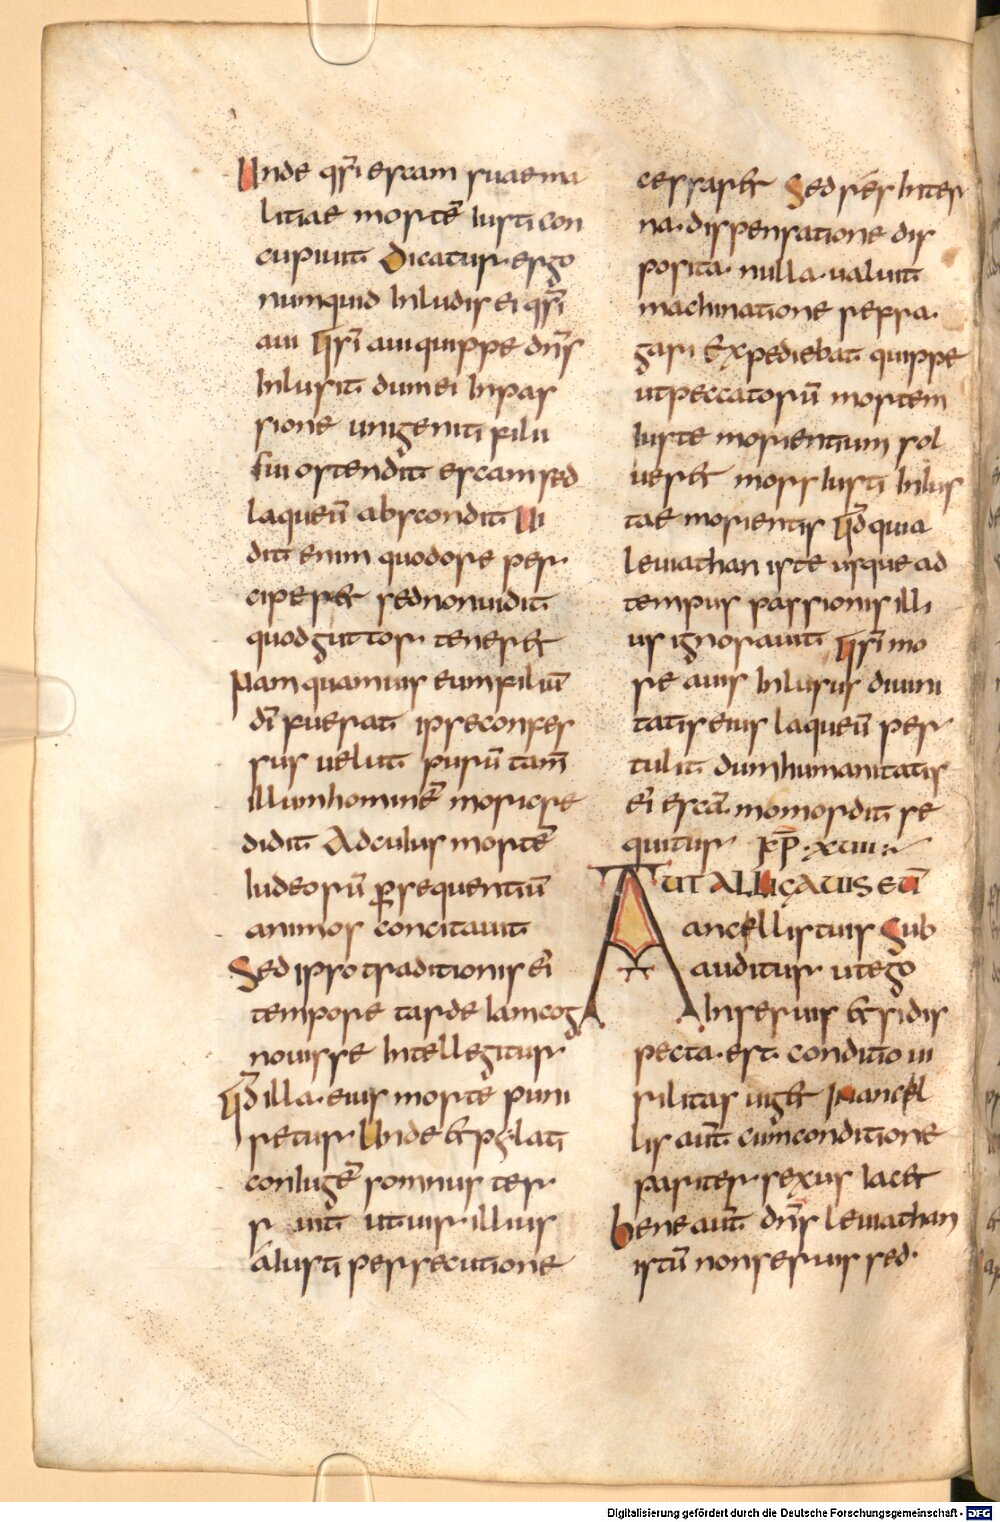 Unde qs̄i escam suae ma
litiae mortē iusti con
cupiuit Dicatur ergo
numquid inludis ei qs̄i
aui qs̄i aui quippe dn̄s
inlusit dum ei in pas
sione unigeniti filii
sui ostendit escam sed
laqueū abscondit Ui
dit enim quod ore per
ciperet sed non uidit
quod guttor teneret
Nam quamuis eum filiū
dī fuerat ipse confes
sus uelut purū tam̄
illum hominē morire
didit Ad cuius mortē
iudeorū ꝑsequentiū
animos concitauit
Sed ipso traditionis eī
tempore tarde iam cog
nouisse intellegitur
qd̄ illa eius morte puni
retur Unde et pylati
coniugē somnus ter
r uit ut uir illius
a iusti persecutione
cessaret Sed res inter
na dispensatione dis
posita nulla ualuit
machinatione refra
gari Expediebat quippe
ut peccatorū mortem
iuste morientium sol
ueret mors iusti inius
tae morientis qd̄ quia
leuiathan iste usque ad
tempus passionis illi
us ignorauit qs̄i mo
re auis inlusus diuini
tatis eius laqueū per
tulit dum humanitatis
eī escā momordit se
quitur xuii
AUT ALLIGAUIS EŪ
ancellis tuis Sub
auditur ut ego
In seruis et si dis
pecta est conditio ui
rilitas uiget In ancel
lis aut̄ cum conditione
pariter sexus iacet
bene aut̄ dn̄s leuiathan
istū non seruis sed
Digitalisierung gefördert durch die Deutsche Forschungsgemeinschaft - DFG